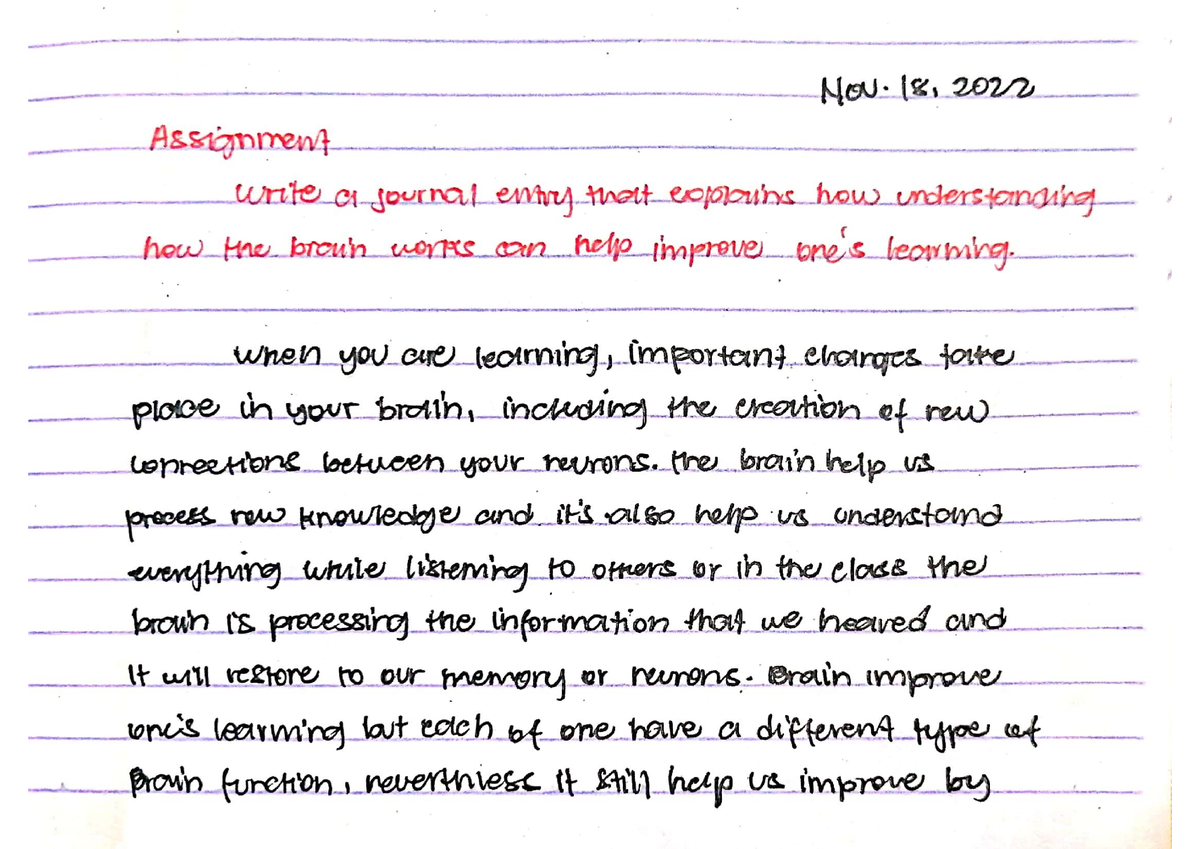 Nov. 18, 2022
Assignment
Write a journal entry that explains how understanding
how the brain works can help improve one's learning.
When you are learning, important changes take
place in your brain, including the creation of new
connections between your neurons. The brain help us
process new knowledge and it's also help us understand
everything while listening to others or in the class the
brain is processing the information that we heared and
It will restore to our memory or neurons. Brain improve
one's learning but each of one have a different type of
Brain function, neverthless it still help us improve by